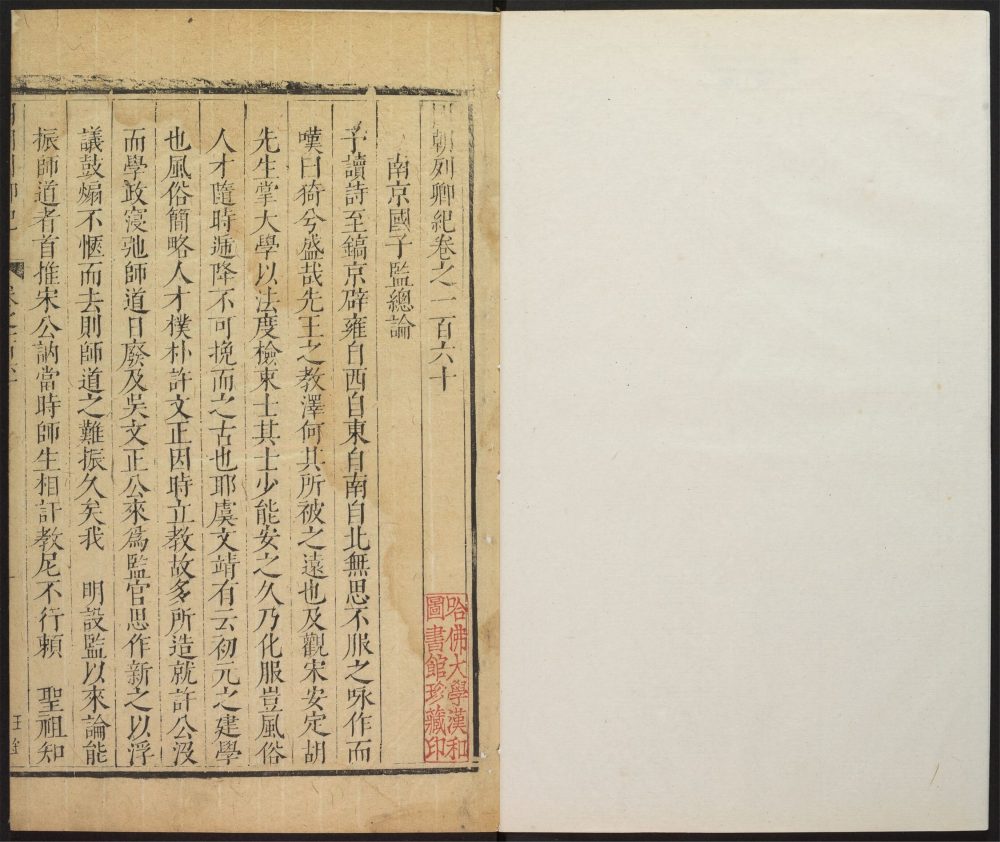 國朝列卿紀卷之一百六十
南京國子監總論
予讀詩至鎬京辟雍自西自東自南自北無思不服之咏作而
嘆曰猗兮盛哉先王之教澤何其所被之遠也及觀宋安定胡
先生掌大學以法度檢束士其士少能安之久乃化服豈風俗
人才隨時遞降不可挽而之古也耶虞文靖有云初元之建學
也風俗簡略人才樸朴許文正因時立教故多所造就許公沒
而學政寖弛師道日廢及吳文正公來爲監官思作新之以浮
議鼓煽不愜而去則師道之難振久矣我 明設監以來論能
振師道者首推宋公訥當時師生相訐教尼不行賴 聖祖知
哈佛大學漢和
圖書館珍藏印